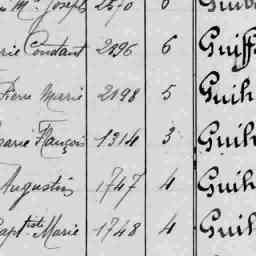 Mie Joseph 2570 6
Constant 2196 6 Guiff
Pierre Marie 2198 5 Guih
François 1314 3 Guih
Augustin 1747 4 Guih
Bapt-iste Marie 1748 4 Guih